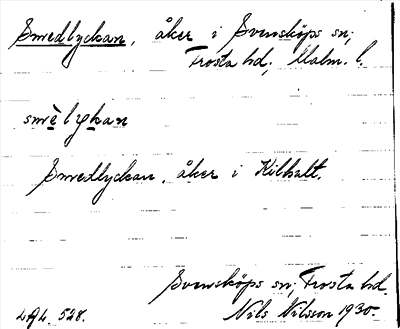 Smedlyckan, åker i Svensköps sn;
Frosta hd; Malm. l.
smèlykan
Smedlyckan, åker i Kilhult.
Svensköps sn; Frosta hd.
528. Nils Nilsson 1930